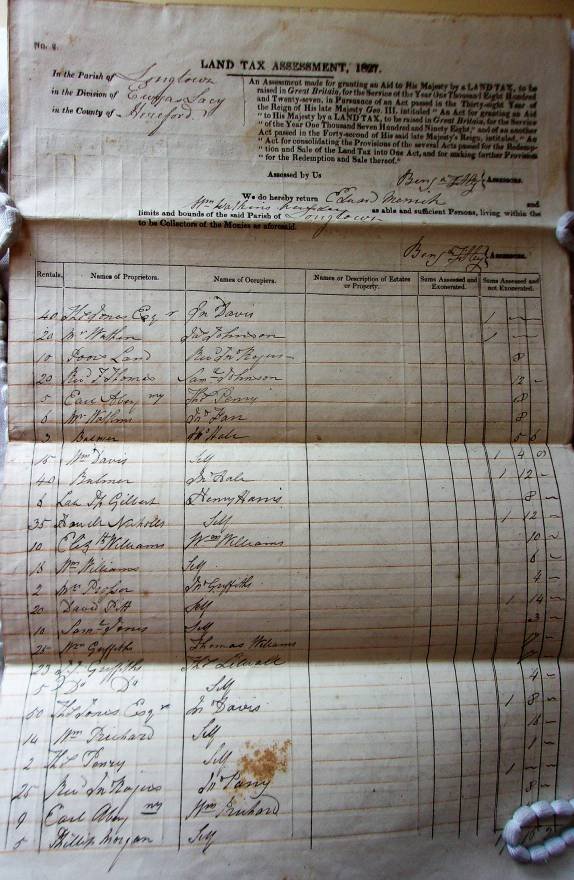 No. 2.
LAND TAX ASSESSMENT, 1827.
In the Parish of Longtown
in the Division of Ewyas Lacy
in the County of Hereford.
An Assessment made for granting an Aid to His Majesty by a LAND TAX, to be
raised in Great Britain, for the Service of the Year One Thousand Eight Hundred
and Twenty-seven, in Pursuance of an Act passed in the Thirty-eight Year of
the Reign of His late Majesty Geo. III. intituled "An Act for granting an Aid
"to His Majesty by a LAND TAX, to be raised in Great Britain, for the Service
"of the Year One Thousand Seven Hundred and Ninety Eight," and of an other
Act passed in the Forty-second of His said late Majesty's Reign, intituled, "An
"Act for consolidating the Provisions of the several Acts passed for the Redemp-
"tion and Sale of the Land Tax into One Act, and for making further Provision
"for the Redemption and Sale thereof."
Assessed by Us
Benj Assessors.
We do hereby return Edward and
Wm Watkins
as able and sufficient Persons, living within the
limits and bounds of the said Parish of Longtown
to be Collectors of the Monies as aforesaid.
Benj Assessors.
Rentals. Names of Proprietors. Names of Occupiers. Names or Description of Estates or Property. Sums Assessed and Exonerated. Sums Assessed and not Exonerated.
40 Thos Jones Esqr Jno Davis 1
20 Mr Johnson 1
10 Land Revd Jno Rogers 8
20 Revd T Thomas Saml Johnson 12
5 Earl Abny Thos Penry 8
6 Mr Jno 8
3 Jno Hale 5 6
15 Wm Davis Self 1 4
40 Jno Hale 1 12
6 Gilbert Henry Harris 8
35 Nicholls Self 1 12
10 Elizth Williams Wm Williams 10
15 Wm Williams Self 6
2 Prosser Jno Griffiths 4
20 David Pitt Self 1 14
10 Saml Jones Self 3
25 Wm Griffiths Thomas Williams
23 Griffiths Thos
5 Do Do Self 4
50 Thos Jones Esqr Jno Davis 1 8
14 Wm Prichard Self
2 Thos Penry Self 1
25 Revd Jno Rogers Jno Parry 1
9 Earl Abny Wm Prichard 8
5 Phillip Morgan Self